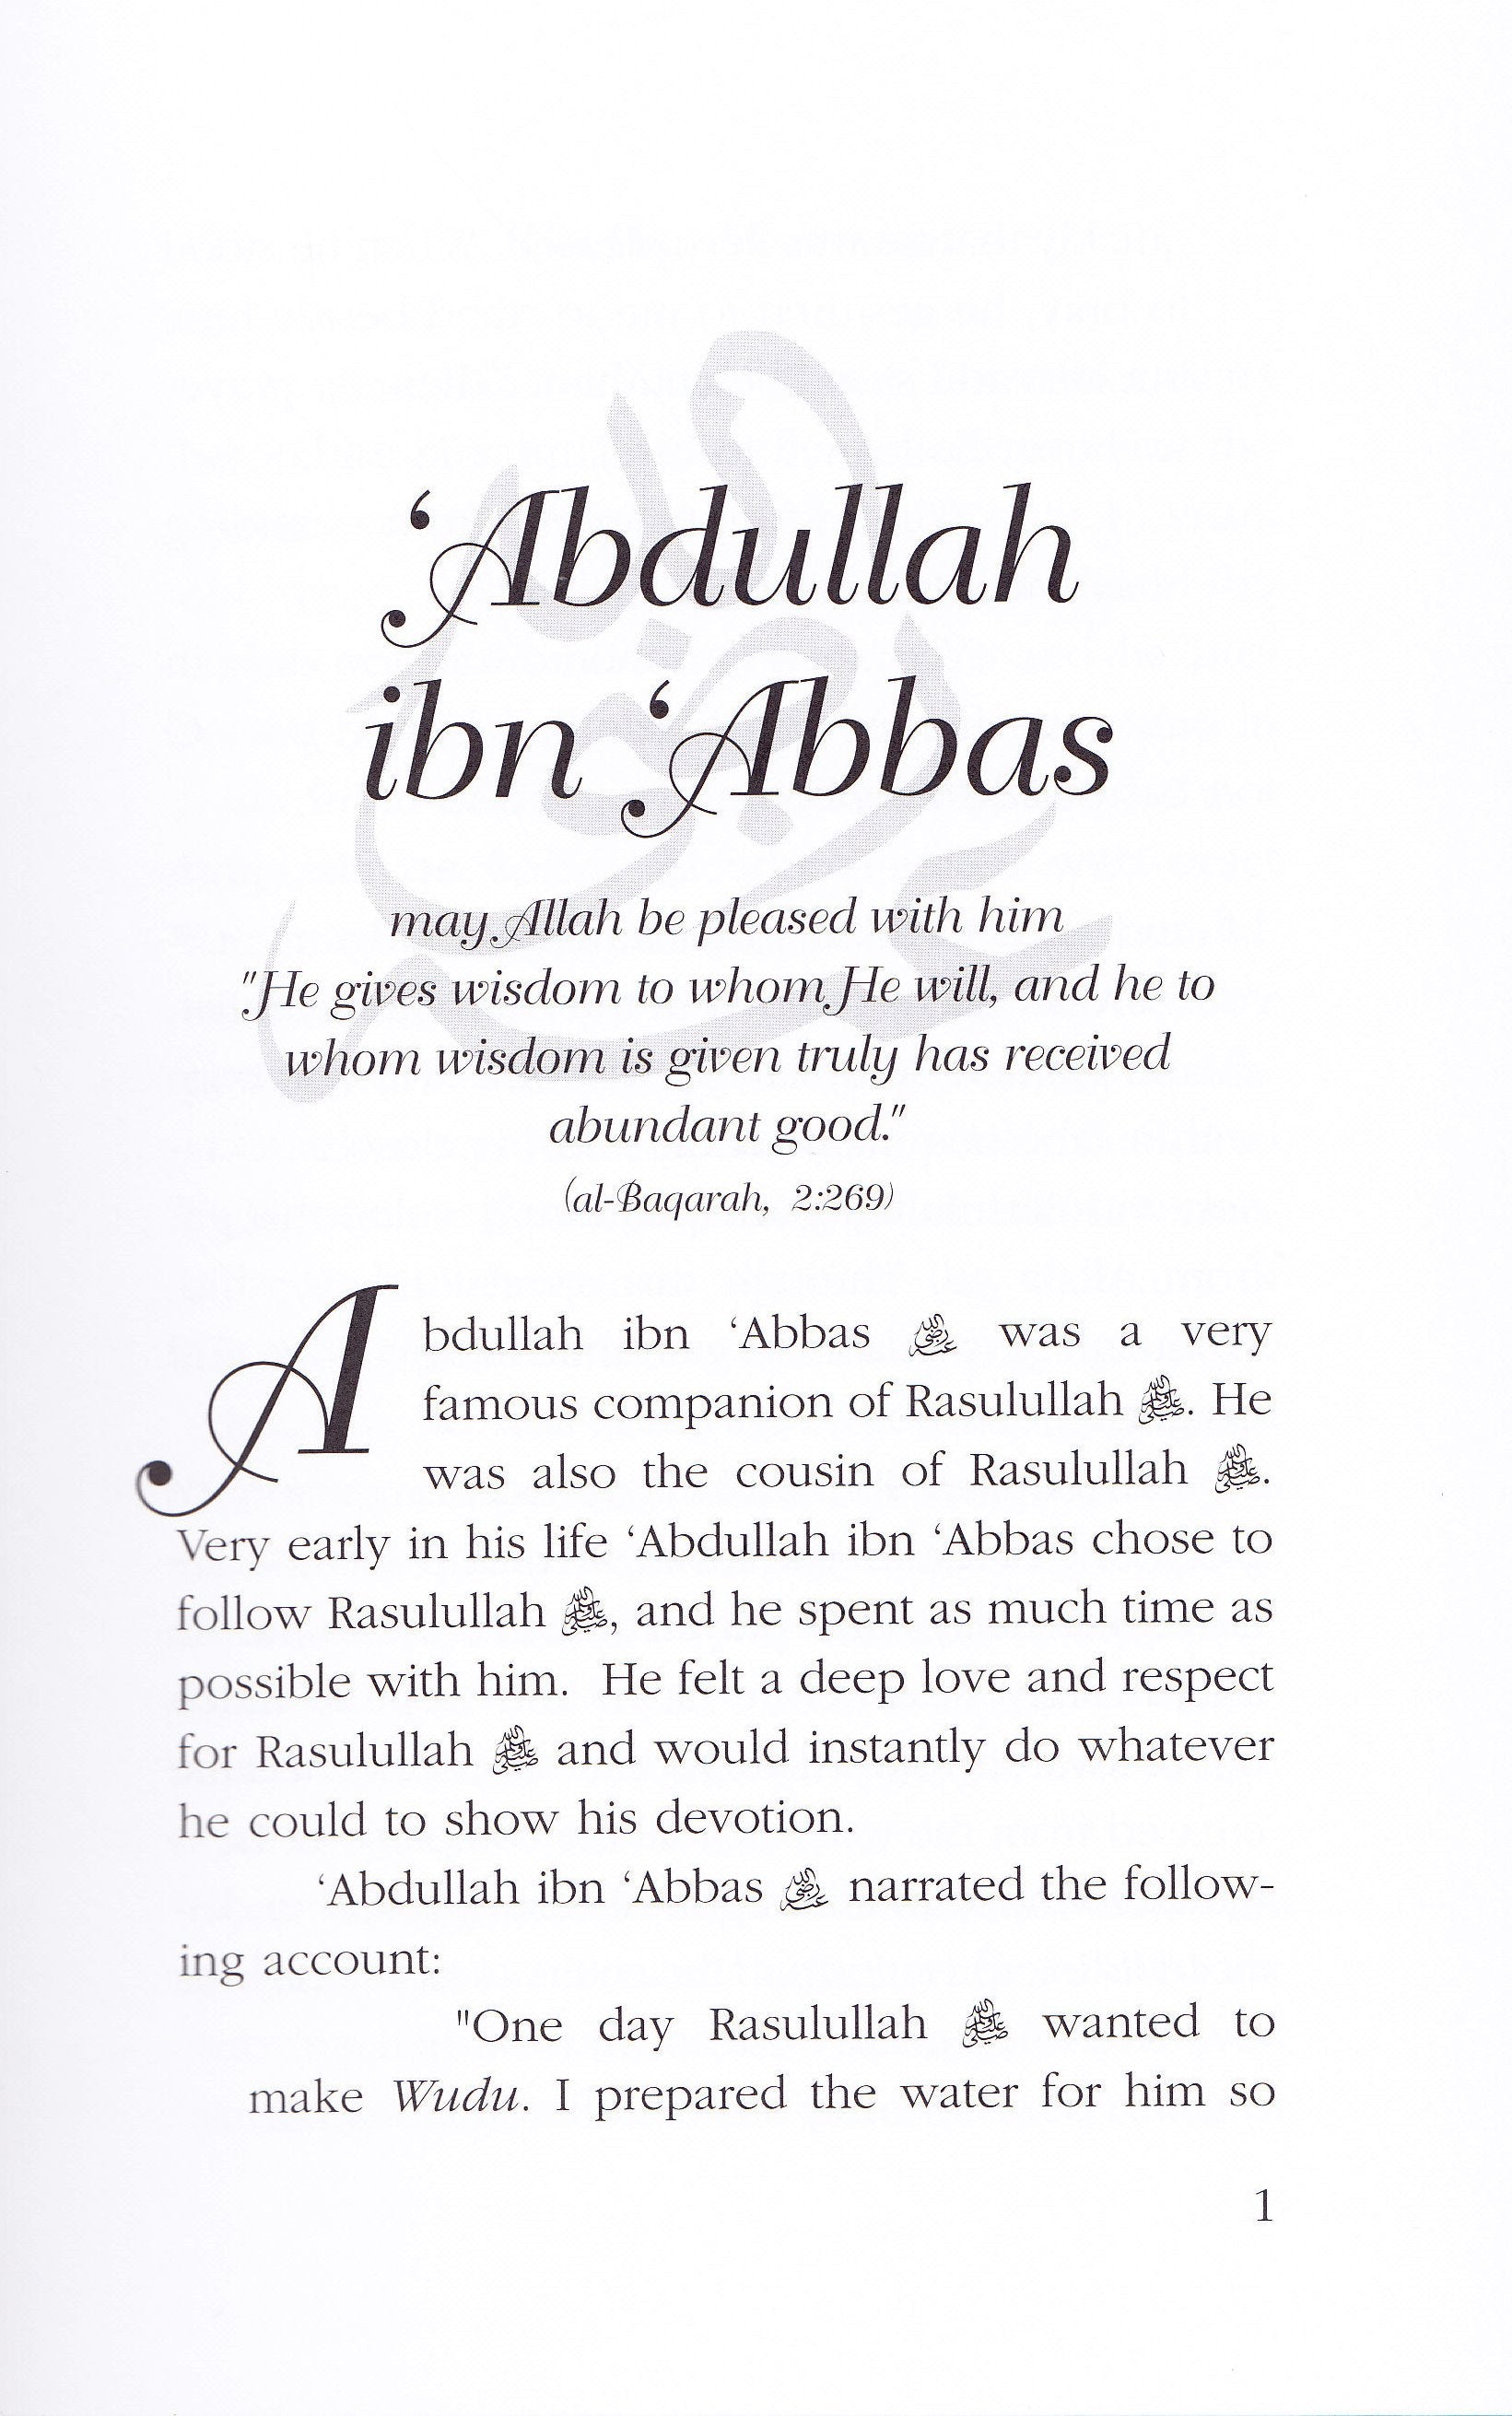 ‘Abdullah
ibn ‘Abbas
may Allah be pleased with him
"He gives wisdom to whom He will, and he to
whom wisdom is given truly has received
abundant good."
(al-Baqarah, 2:269)
Abdullah ibn ‘Abbas رضي الله عنه was a very
famous companion of Rasulullah ﷺ. He
was also the cousin of Rasulullah ﷺ.
Very early in his life ‘Abdullah ibn ‘Abbas chose to
follow Rasulullah ﷺ, and he spent as much time as
possible with him. He felt a deep love and respect
for Rasulullah ﷺ and would instantly do whatever
he could to show his devotion.
‘Abdullah ibn ‘Abbas رضي الله عنه narrated the follow-
ing account:
"One day Rasulullah ﷺ wanted to
make Wudu. I prepared the water for him so
1